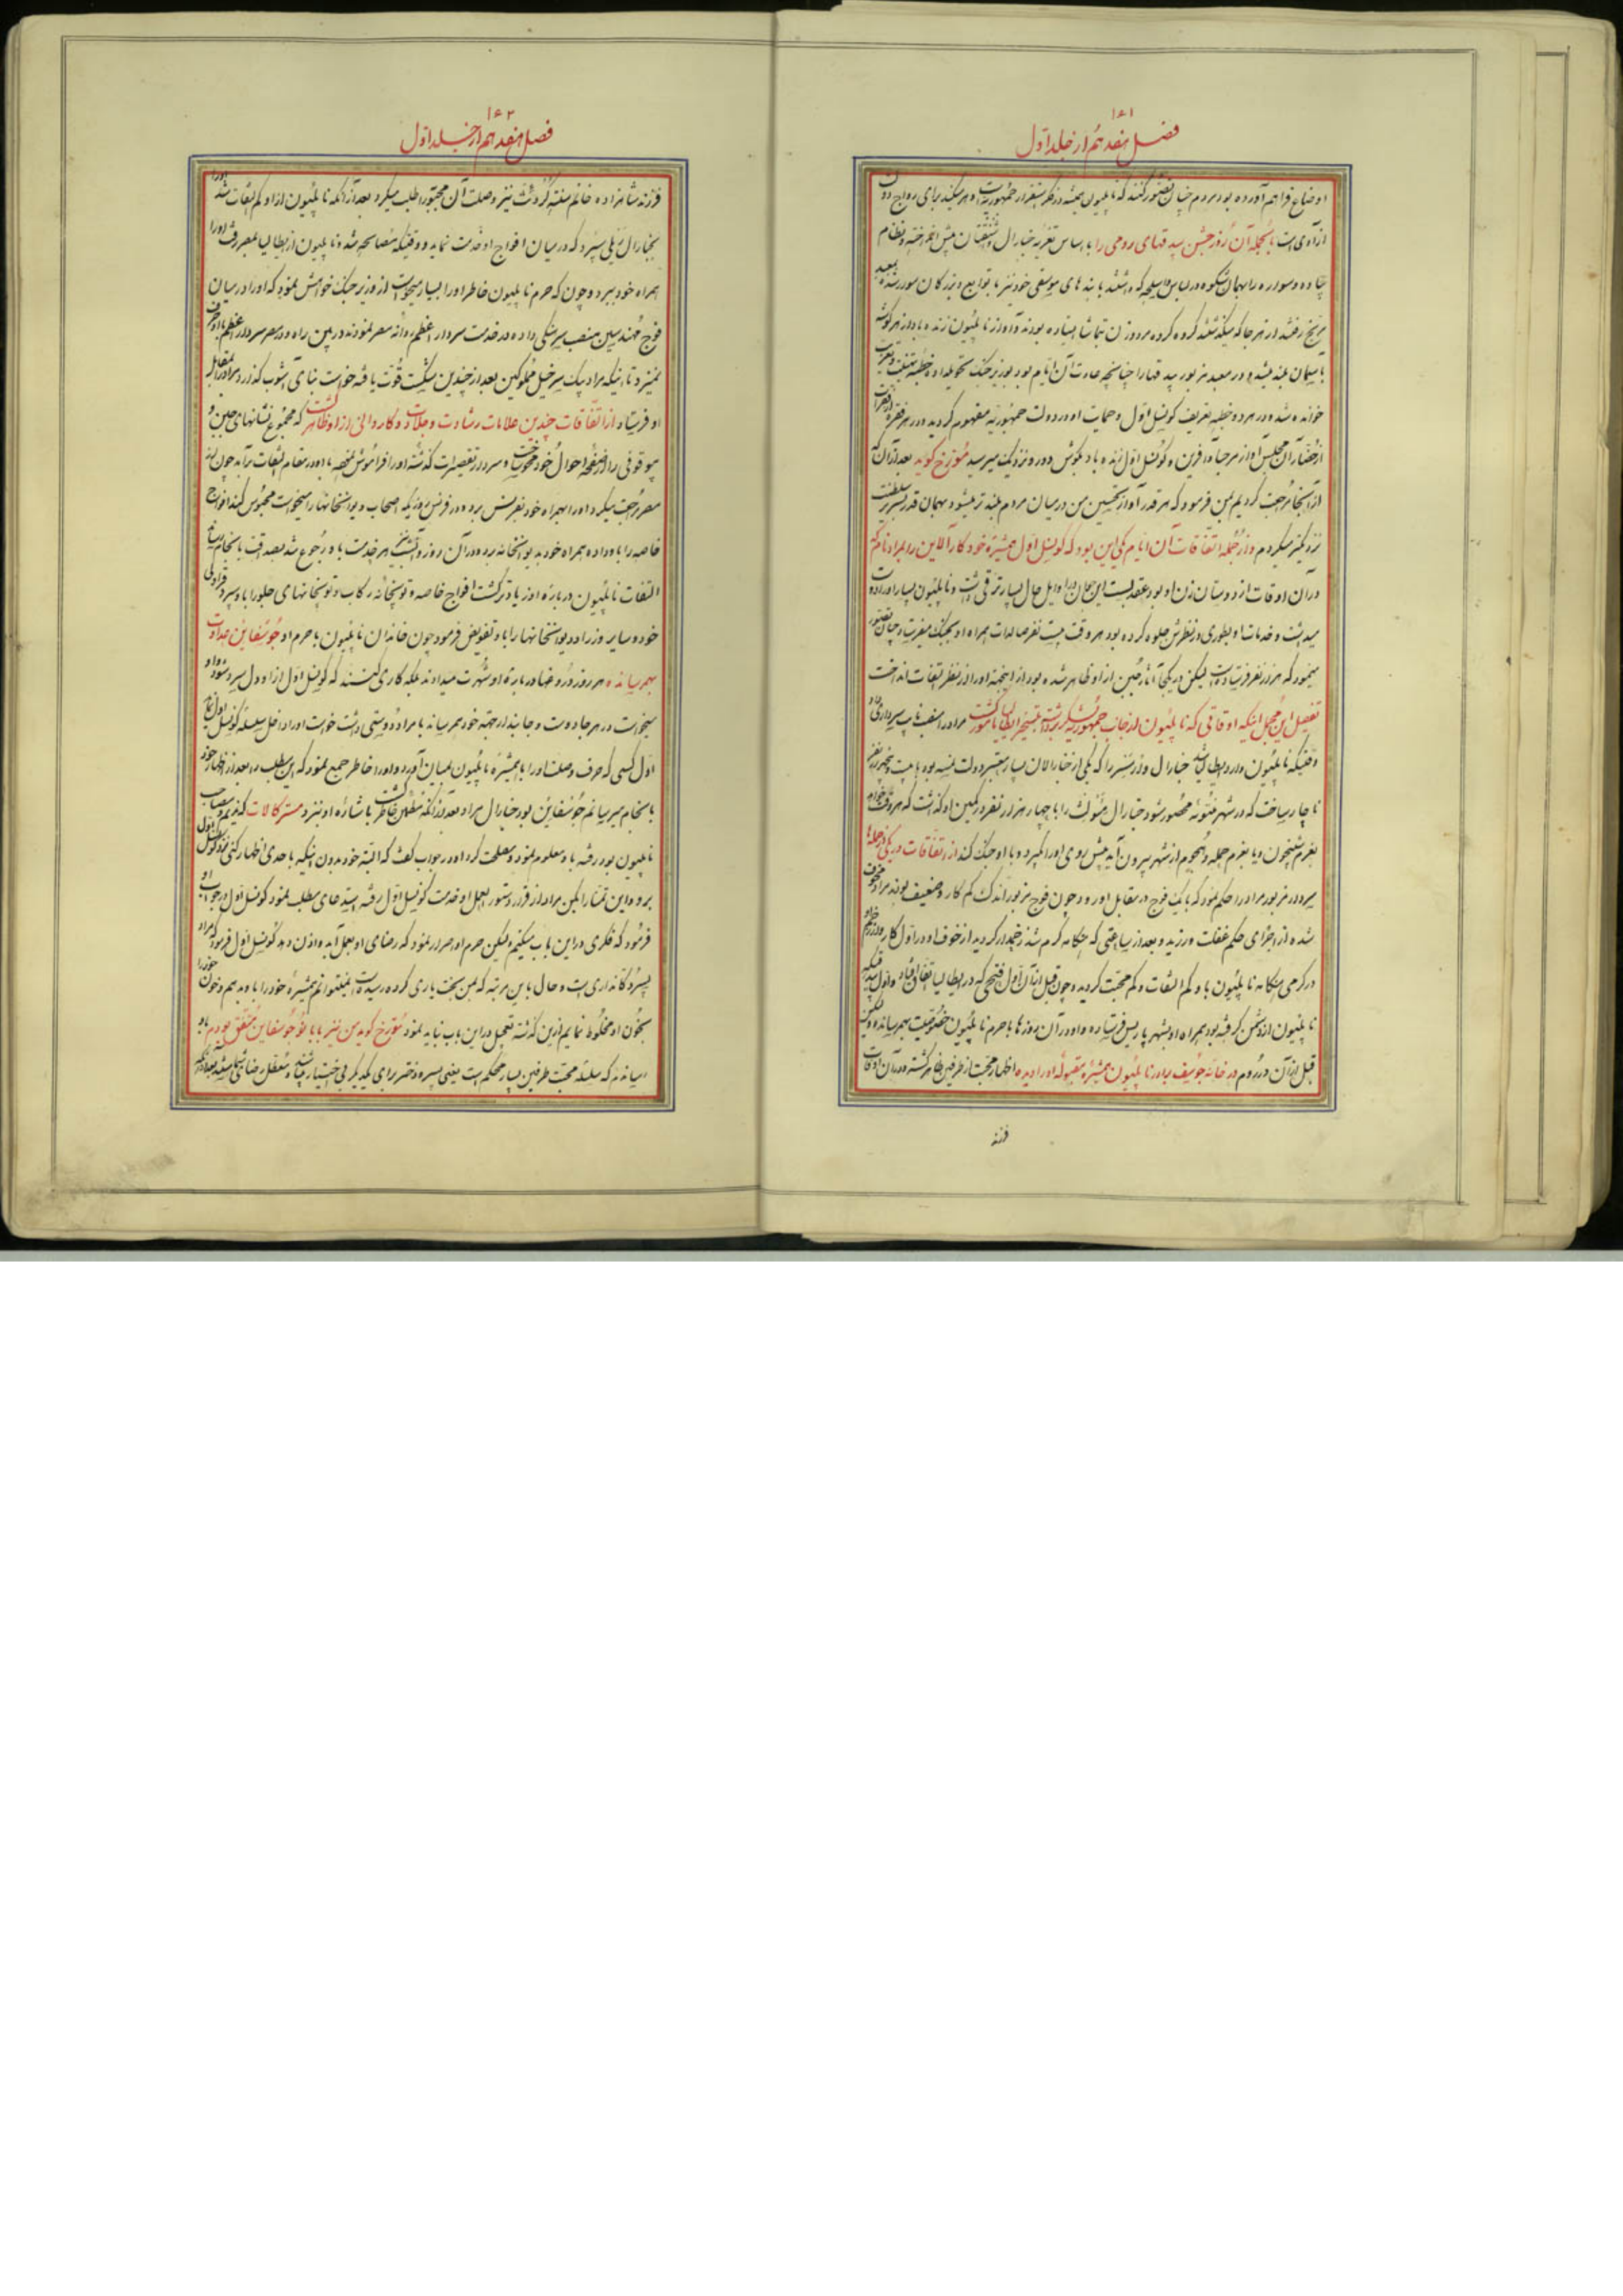 ۱۶۱
فصل هفدهم از جلد اول
اوضاع فراهم آورده بود مردم چنان تصور کنند که ناپلیون همیشه در فکر استقرار جمهوریت است و هر میکند برای رواج دادن
از آدی است بالجمله آن روز جشن بیدقهای رومی را با اساس تعزیه جنارال وشنقتان پیش انداخته و نظام
پیاده و سواره را بهمان شکوه در لباس و اسلحه که داشتند با بندهای موسیقی خود نیز با توابع و بزرگان سوار شده بمعبد
مریخ رفتند از هر جا که میگذشتند گروه گروه مرد و زن تماشا ایستاده بودند و آواز ناپلیون زنده باد از هر گوشه
باسمان بلند میشد و در معبد مزبور بیدقها را چنانچه عادت آن ایام بود بوزیر جنک تحویل داده خطبه تهنیت و تعزیت
خوانده شد و در هر دو خطبه تعریف کونسل اول و حمایت او در دولت جمهوریه مفهوم گردید و در هر فقره از فقرات
از حضار آن مجلس آواز مرحبا و آفرین و کونسل اول زنده باد بکوش دور و نزدیک میرسید مورخ گوید بعد از آن که
از آنجا مراجعت کردیم بمن فرمود که هر قدر آواز تحسین من در میان مردم بلندتر میشود بهمان قدر بسریر سلطنت
نزدیکتر میگردم و از جمله اتفاقات آن ایام یکی این بود که کونسل اول همشیره خود کارالاین را بمراد نام که
در آن اوقات از دوستان زن او بود عقد بست این جوان در اوایل حال بسیار ترقی داشت و ناپلیون بسیار او را دوست
میداشت و خدمات او بطوری در نظرش جلوه کرده بود هر وقت بیست نفر صالدات همراه او بجنک میفرستاد چنان تصور
مینمود که هزار نفر فرستاده است لیکن در یکجا آثار جبن از او ظاهر شده بود از اینجهة او را از نظر التفات انداخت
تفصیل این مجمل اینکه اوقاتی که ناپلیون از جانب جمهوریه لشکر برداشته بتسخیر ایطالیا مامور گشت مراد را بمنصب نایب سرداری داد
وقتیکه ناپلیون وارد ایطالیا شد جنارال وزرمسر را که یکی از جنارالان بسیار معتبر دولت نمسه بود با بیست و پنج هزار نفر
ناچار ساخت که در شهر منتوئه محصور شود جنارال مئولث را با چهار هزار نفر در کمین او گذاشت که هر وقت خواهد
بعزم شبیخون و یا بعزم حمله و هجوم از شهر بیرون آید پیش روی او را گیرد و با او جنک کند از اتفاقات در یکی از حمله‌ها
سردار مزبور مراد را حکم نمود که با یک فوج در مقابل او رود چون فوج مزبور اندک کم کار و ضعیف بودند مراد مخوف
شده از اجرای حکم غفلت ورزید و بعد از ساعتی که هنکامه گرم شد زخمدار گردید از خوف او در اول کار
در گرمی هنکامه ناپلیون با او کم التفات و کم محبت گردید و چون قبل از آن اول فتحی که در ایطالیا اتفاق افتاد و اول بیدقیکه
ناپلیون از دشمن گرفته بود بهمراه او بشهر پاریس فرستاده و او در آن روزها با حرم ناپلیون خصوصیت بهمرسانده و لیکن
قبل از آن در روم در خانه جوسف برادر ناپلیون همشیره مقبوله او را دیده اظهار محبت از طرفین ظاهر گشته و در آن اوقات
فرزند
۱۶۲
فصل هفدهم از جلد اول
فرزند شاهزاده خانم سنته کروشث نیز وصلت آن محبوبه را طلب میکرد بعد از آنکه ناپلیون از او کم التفات شد او را
بجنارال ریلی سپرد که در میان افواج او خدمت نماید و وقتیکه مصالحه شد و ناپلیون از ایطالیا بمصر رفت او را
همراه خود ببرد و چون که حرم ناپلیون خاطر او را بسیار میخواست از وزیر جنک خواهش نمود که او را در میان
فوج مهندسین منصب سرهنکی داده در خدمت سردار اعظم روانه مصر نمودند در بین راه و در مصر سردار اعظم با او حرف
نمیزد تا اینکه مراد بیک سرخیل مملوکین بعد از چندین شکست قوت یافته خواست بنای آشوب گذارد مراد را بمقابل
او فرستاد از اتفاقات چندین علامات رشادت و جلادت و کاردانی از او ظاهر گشت که مجموع نشانهای جبن و
بیوقوفی را از صفحه احوال خود محو ساخت و سردار تقصیرات گذشته او را فراموش نموده با او در مقام التفات برآمد چون از
مصر مراجعت میکرد او را بهمراه خود بفرنس برد و در فرنس روزیکه اصحاب دیوانخانها را میخواست محبوس کند افواج
خاصه را باو داده همراه خود بدیوانخانه برد و در آن روز و آنشب نیز هر خدمت باو رجوع شد بصداقت بانجام رسانید
التفات ناپلیون در باره او زیادتر گشت افواج خاصه و توپخانه رکاب و توپخانهای جلو را باو سپرد
خود و سایر وزرا و دیوانخانها را باو تفویض فرمود چون خاندان ناپلیون با حرم او جوسفاین عداوت
بهمرسانده هر روز دروغها در باره او شهرت میدادند بلکه کاری کنند که کونسل اول از او دل سرد شود و او
میخواست در هر جا دوست و جانبدار جهة خود بهمرساند با مراد دوستی داشت خواست او را داخل سلسله کونسل اول نماید
اول کسی که حرف وصلت او را با همشیره ناپلیون بمیان آورد و او را خاطر جمع نمود که این مطلب را بعد از اظهار خود
بانجام میرسانم جوسفاین بود جنارال مراد بعد از آنکه مطمئن خاطر گشت باشاره او بنزد مسترکالات که ندیم و مصاحب
ناپلیون بود رفته باو معلوم نمود و مصلحت کرد او در جواب گفت که البته خود بدون اینکه باحدی اظهار کنی نزد کونسل اول
برو و این تمنا را بکن مراد از قرار دستور العمل او خدمت کونسل اول رفته استدعای مطلب نمود کونسل اول در جواب او
فرمود که فکری در این باب میکنم لیکن حرم او اصرار نمود که رضای او بعمل آمده و اذن دهد کونسل اول فرمود که مراد
پسر دکانداری است و حال باین مرتبه که بمن بخت یاری کرده رسیده است نمیتوانم همشیره خود را باو بدهم و خون خود را
بخون او مخلوط نمایم از این گذشته تعجیل در این باب نباید نمود مورخ گوید من نیز با بانو جوسفاین متفق بودم باو
رسانیدند که سلسله محبت طرفین بسیار محکم است یعنی پسر و دختر برای یکدیگر بی اختیار میباشند